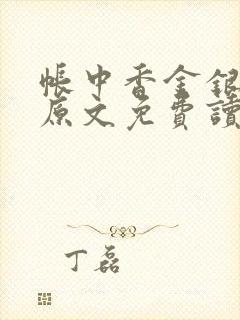 帳中香金銀
原文免費讀
丁磊